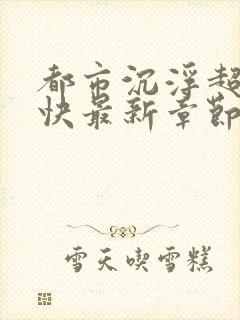 都市沉浮超
快最新章節
雪天喫雪糕